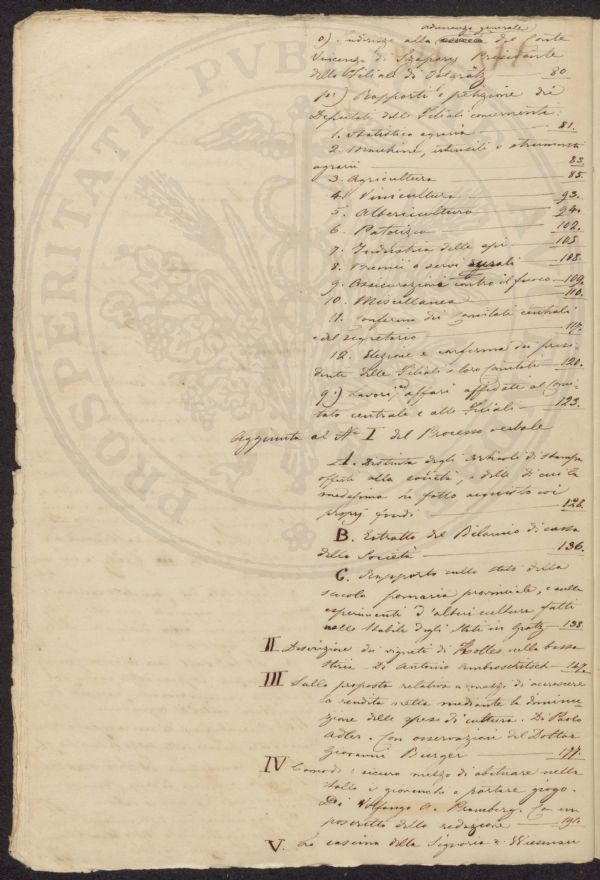 ordinanza generale
o). Indirizzo alla del Conte
Vincenzo di Szapary Presidente
della Filiale di 80
p.) Rapporti e petizione dei
Deputati delle Filiali concernenti:
1. Statistica agraria 81.
2. Macchine, utensili e strumenti
agrarii 83.
3. Agricultura 85.
4. Vinicultura 93.
5. Albericultura 94.
6. Pastorizia 102.
7. Industria delle api 105
8. Premii a servi rurali 108.
9. Assicurazione contro il fuoco 109.
10. Miscellanea 110.
11. Conferma dei Comitati centrali
e del Segretario 117.
12. Elezione e conferma dei presi-
denti delle Filiali e loro Comitati 120.
q.) Lavori, ed affari affidate al Comi-
tato centrale e alle Filiali 123.
Aggiunta al No I del Processo verbale
A. Distinta degli articoli di stampa
offerti alla società, e delle di cui la
medesima ha fatto acquisto coi
proprj fondi 128.
B. Estratto del Bilancio di cassa
della Società 136.
C. Rapporto sullo stato della
scuola pomaria provinciale, e sulli
esperimenti d'albericultura fatti
nello Stabile degli Stati in Gratz 138.
II Descrizione dei vigneti di Kolles sulla bassa
Stiria. Di Antonio 147.
III Sulla proposta relativa a mezzi di accrescere
la rendita netta mediante la diminu-
zione delle spese di cultura. Di Paolo
Adler. Con osservazioni del Dottor
Giovanni Burger 177.
IV Comodo e sicuro mezzo di abituare nella
stalla i giovenchi a portare giogo.
Di Volfango N. Bramberg. Con un
poscritto della redazione 191.
V. La cascina della Signoria di Wiesenau